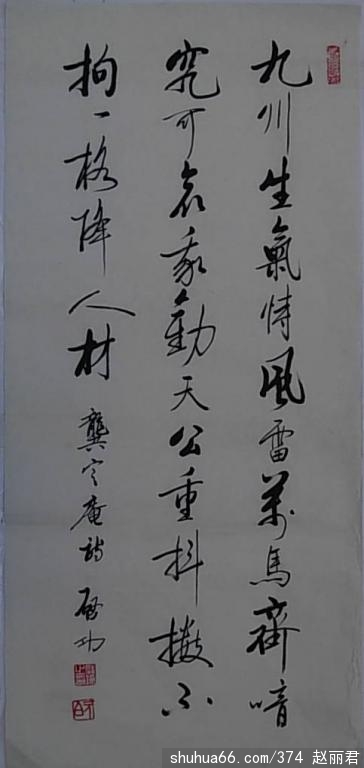 九州生氣恃風雷萬馬齊喑
究可哀我勸天公重抖擻不
拘一格降人材
龔定庵詩 啟功
shuhua66.com/374 赵丽君